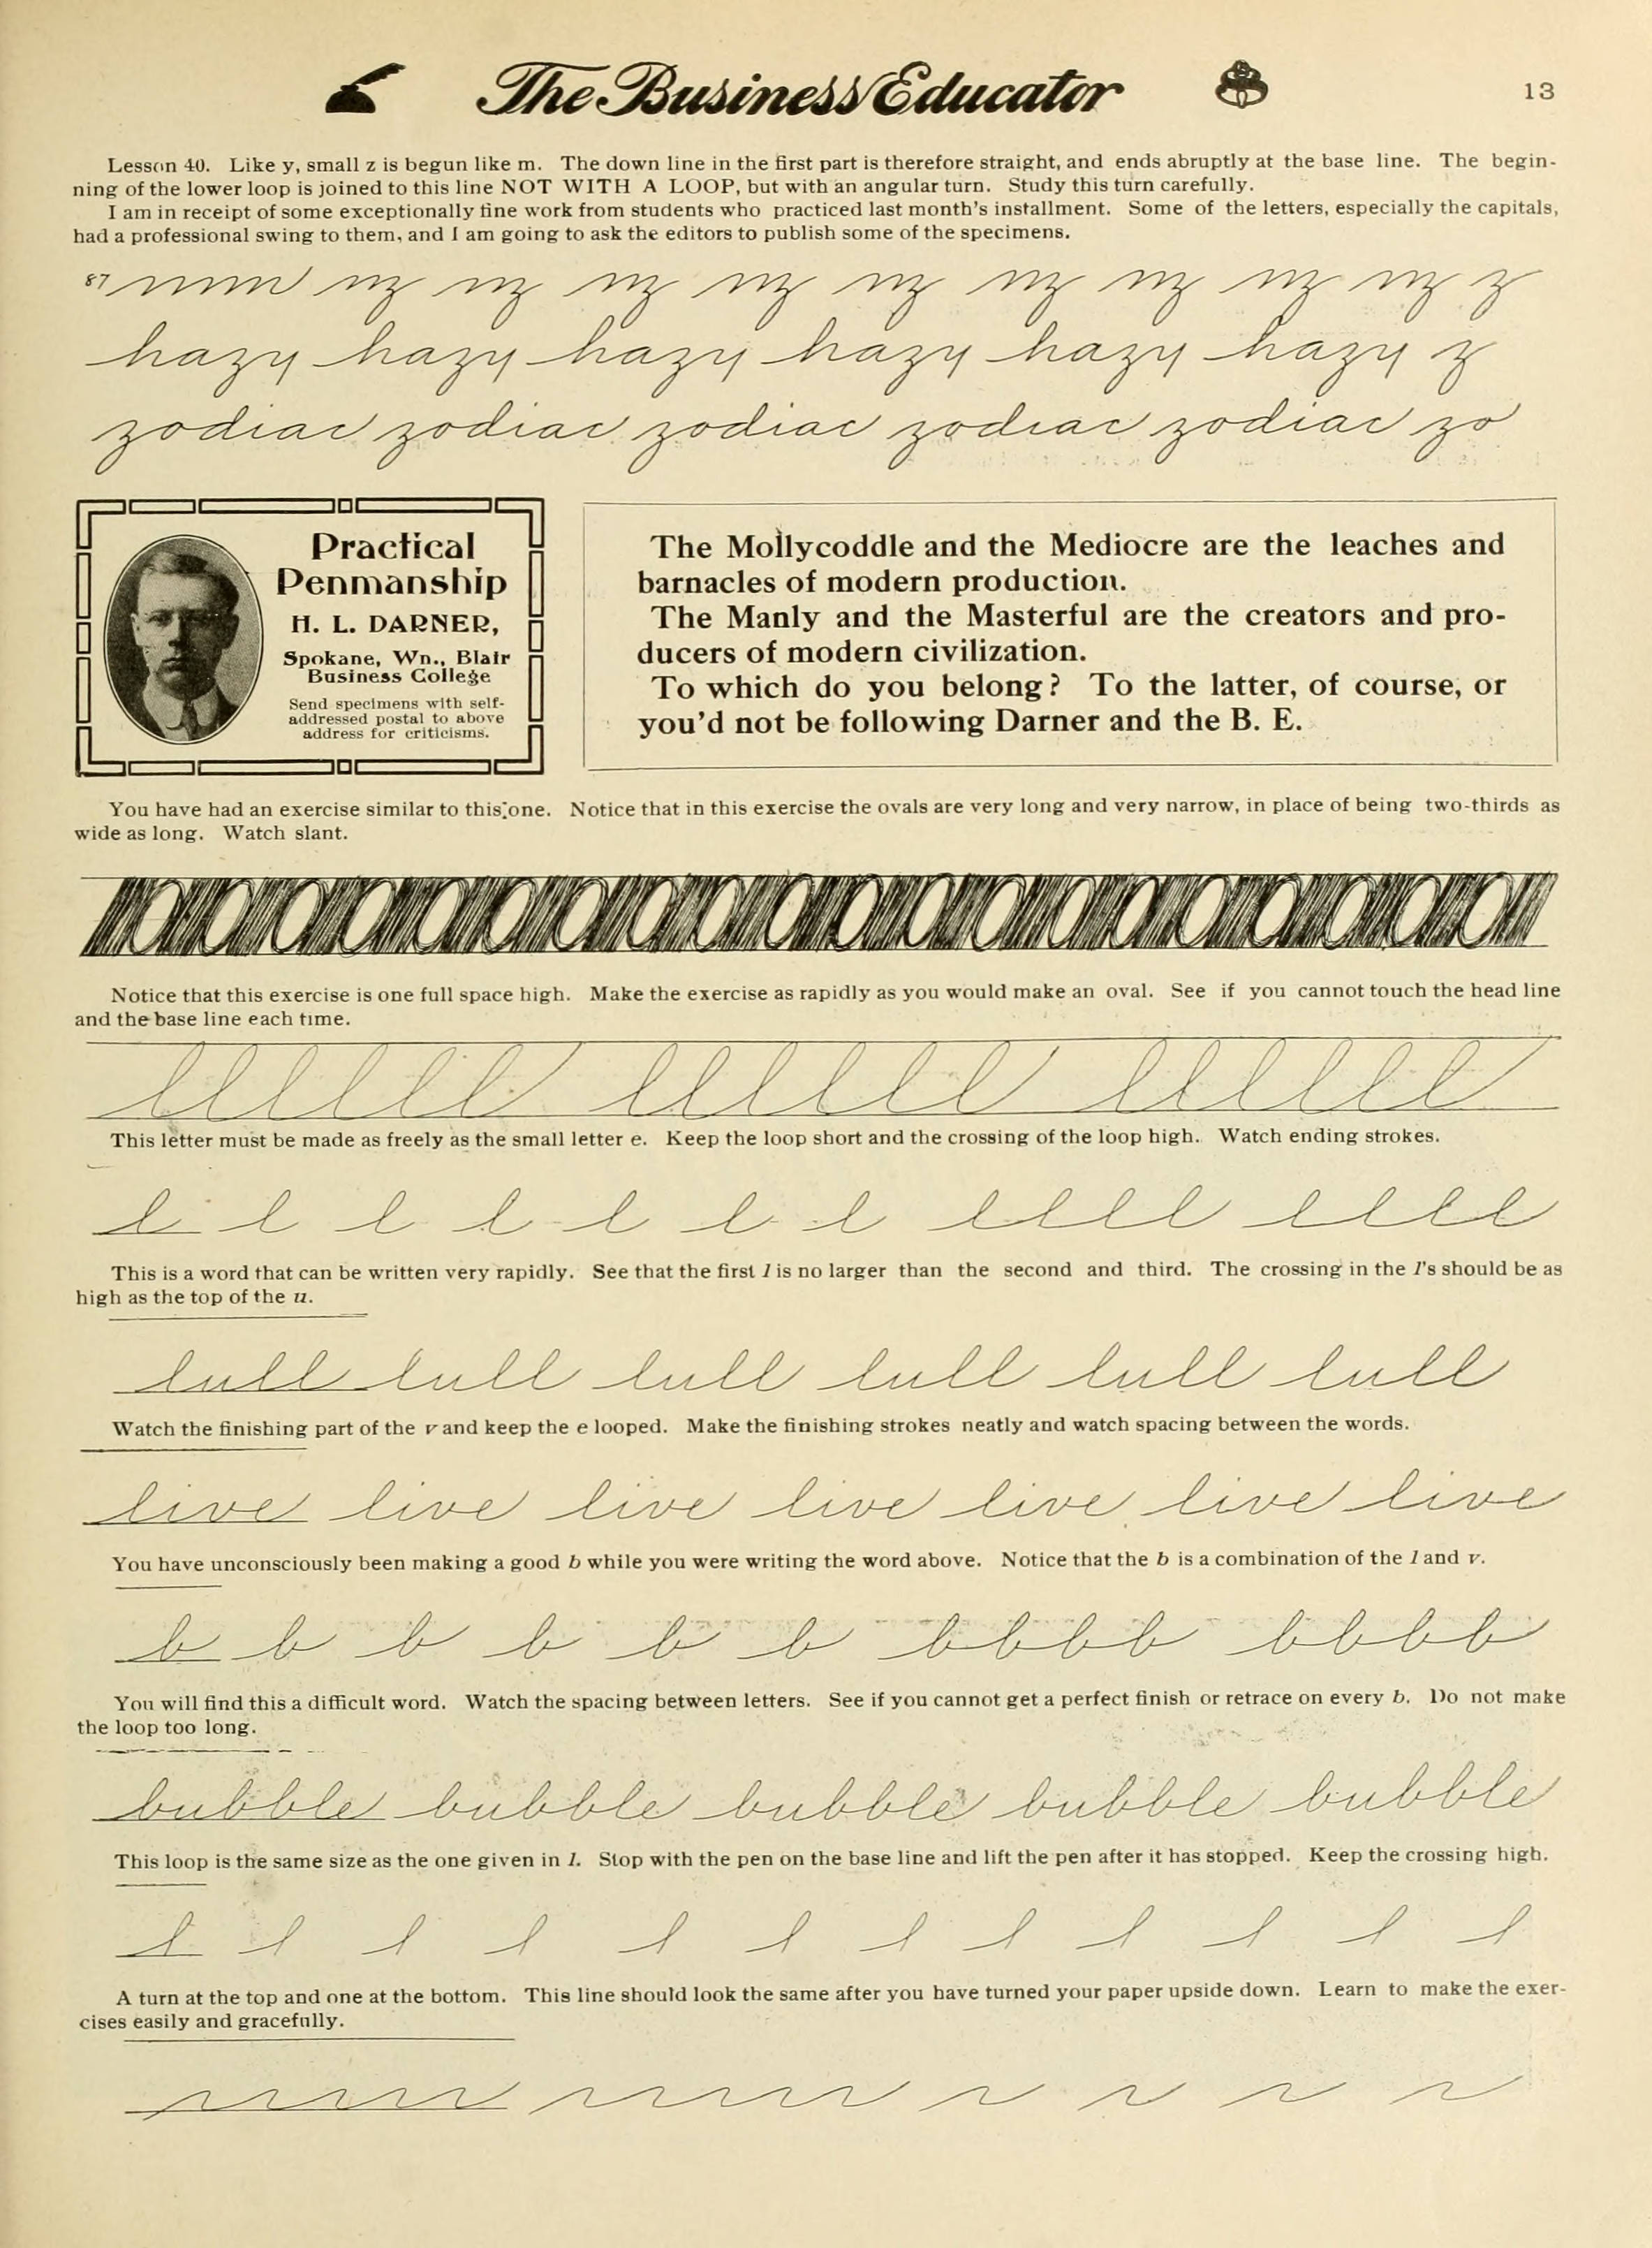 The Business Educator
13
Lesson 40. Like y, small z is begun like m. The down line in the first part is therefore straight, and ends abruptly at the base line. The begin-
ning of the lower loop is joined to this line NOT WITH A LOOP, but with an angular turn. Study this turn carefully.
I am in receipt of some exceptionally fine work from students who practiced last month's installment. Some of the letters, especially the capitals,
had a professional swing to them, and I am going to ask the editors to publish some of the specimens.
87 mmm mz mz mz mz mz mz mz mz mz z
hazy hazy hazy hazy hazy hazy z
zodiac zodiac zodiac zodiac zodiac zo
Practical
Penmanship
H. L. DARNER,
Spokane, Wn., Blair
Business College
Send specimens with self-
addressed postal to above
address for criticisms.
The Mollycoddle and the Mediocre are the leaches and
barnacles of modern production.
The Manly and the Masterful are the creators and pro-
ducers of modern civilization.
To which do you belong? To the latter, of course, or
you'd not be following Darner and the B. E.
You have had an exercise similar to this one. Notice that in this exercise the ovals are very long and very narrow, in place of being two-thirds as
wide as long. Watch slant.
Notice that this exercise is one full space high. Make the exercise as rapidly as you would make an oval. See if you cannot touch the head line
and the base line each time.
llllll llllll llllll
This letter must be made as freely as the small letter e. Keep the loop short and the crossing of the loop high. Watch ending strokes.
l l l l l l l llll llll
This is a word that can be written very rapidly. See that the first l is no larger than the second and third. The crossing in the l's should be as
high as the top of the u.
lull lull lull lull lull lull
Watch the finishing part of the v and keep the e looped. Make the finishing strokes neatly and watch spacing between the words.
live live live live live live live
You have unconsciously been making a good b while you were writing the word above. Notice that the b is a combination of the l and v.
b b b b b b bbbb bbbb
You will find this a difficult word. Watch the spacing between letters. See if you cannot get a perfect finish or retrace on every b. Do not make
the loop too long.
bubble bubble bubble bubble bubble
This loop is the same size as the one given in l. Stop with the pen on the base line and lift the pen after it has stopped. Keep the crossing high.
A turn at the top and one at the bottom. This line should look the same after you have turned your paper upside down. Learn to make the exer-
cises easily and gracefully.